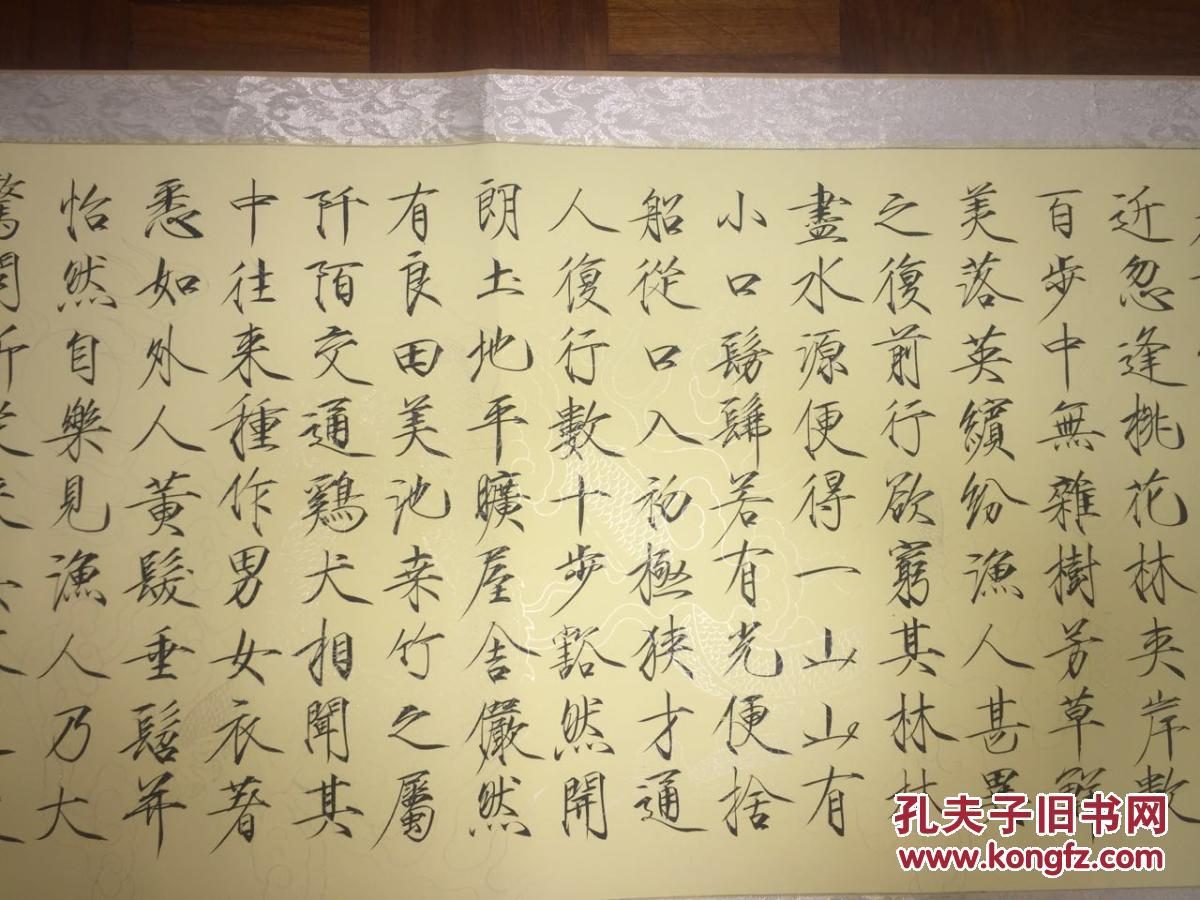 近忽逢桃花林夾岸數
百步中無雜樹芳草鮮
美落英繽紛漁人甚異
之復前行欲窮其林林
盡水源便得一山山有
小口髣髴若有光便捨
船從口入初極狹才通
人復行數十步豁然開
朗土地平曠屋舍儼然
有良田美池桒竹之屬
阡陌交通鷄犬相聞其
中往来種作男女衣著
悉如外人黃髮垂髫并
怡然自樂見漁人乃大
孔夫子旧书网
www.kongfz.com